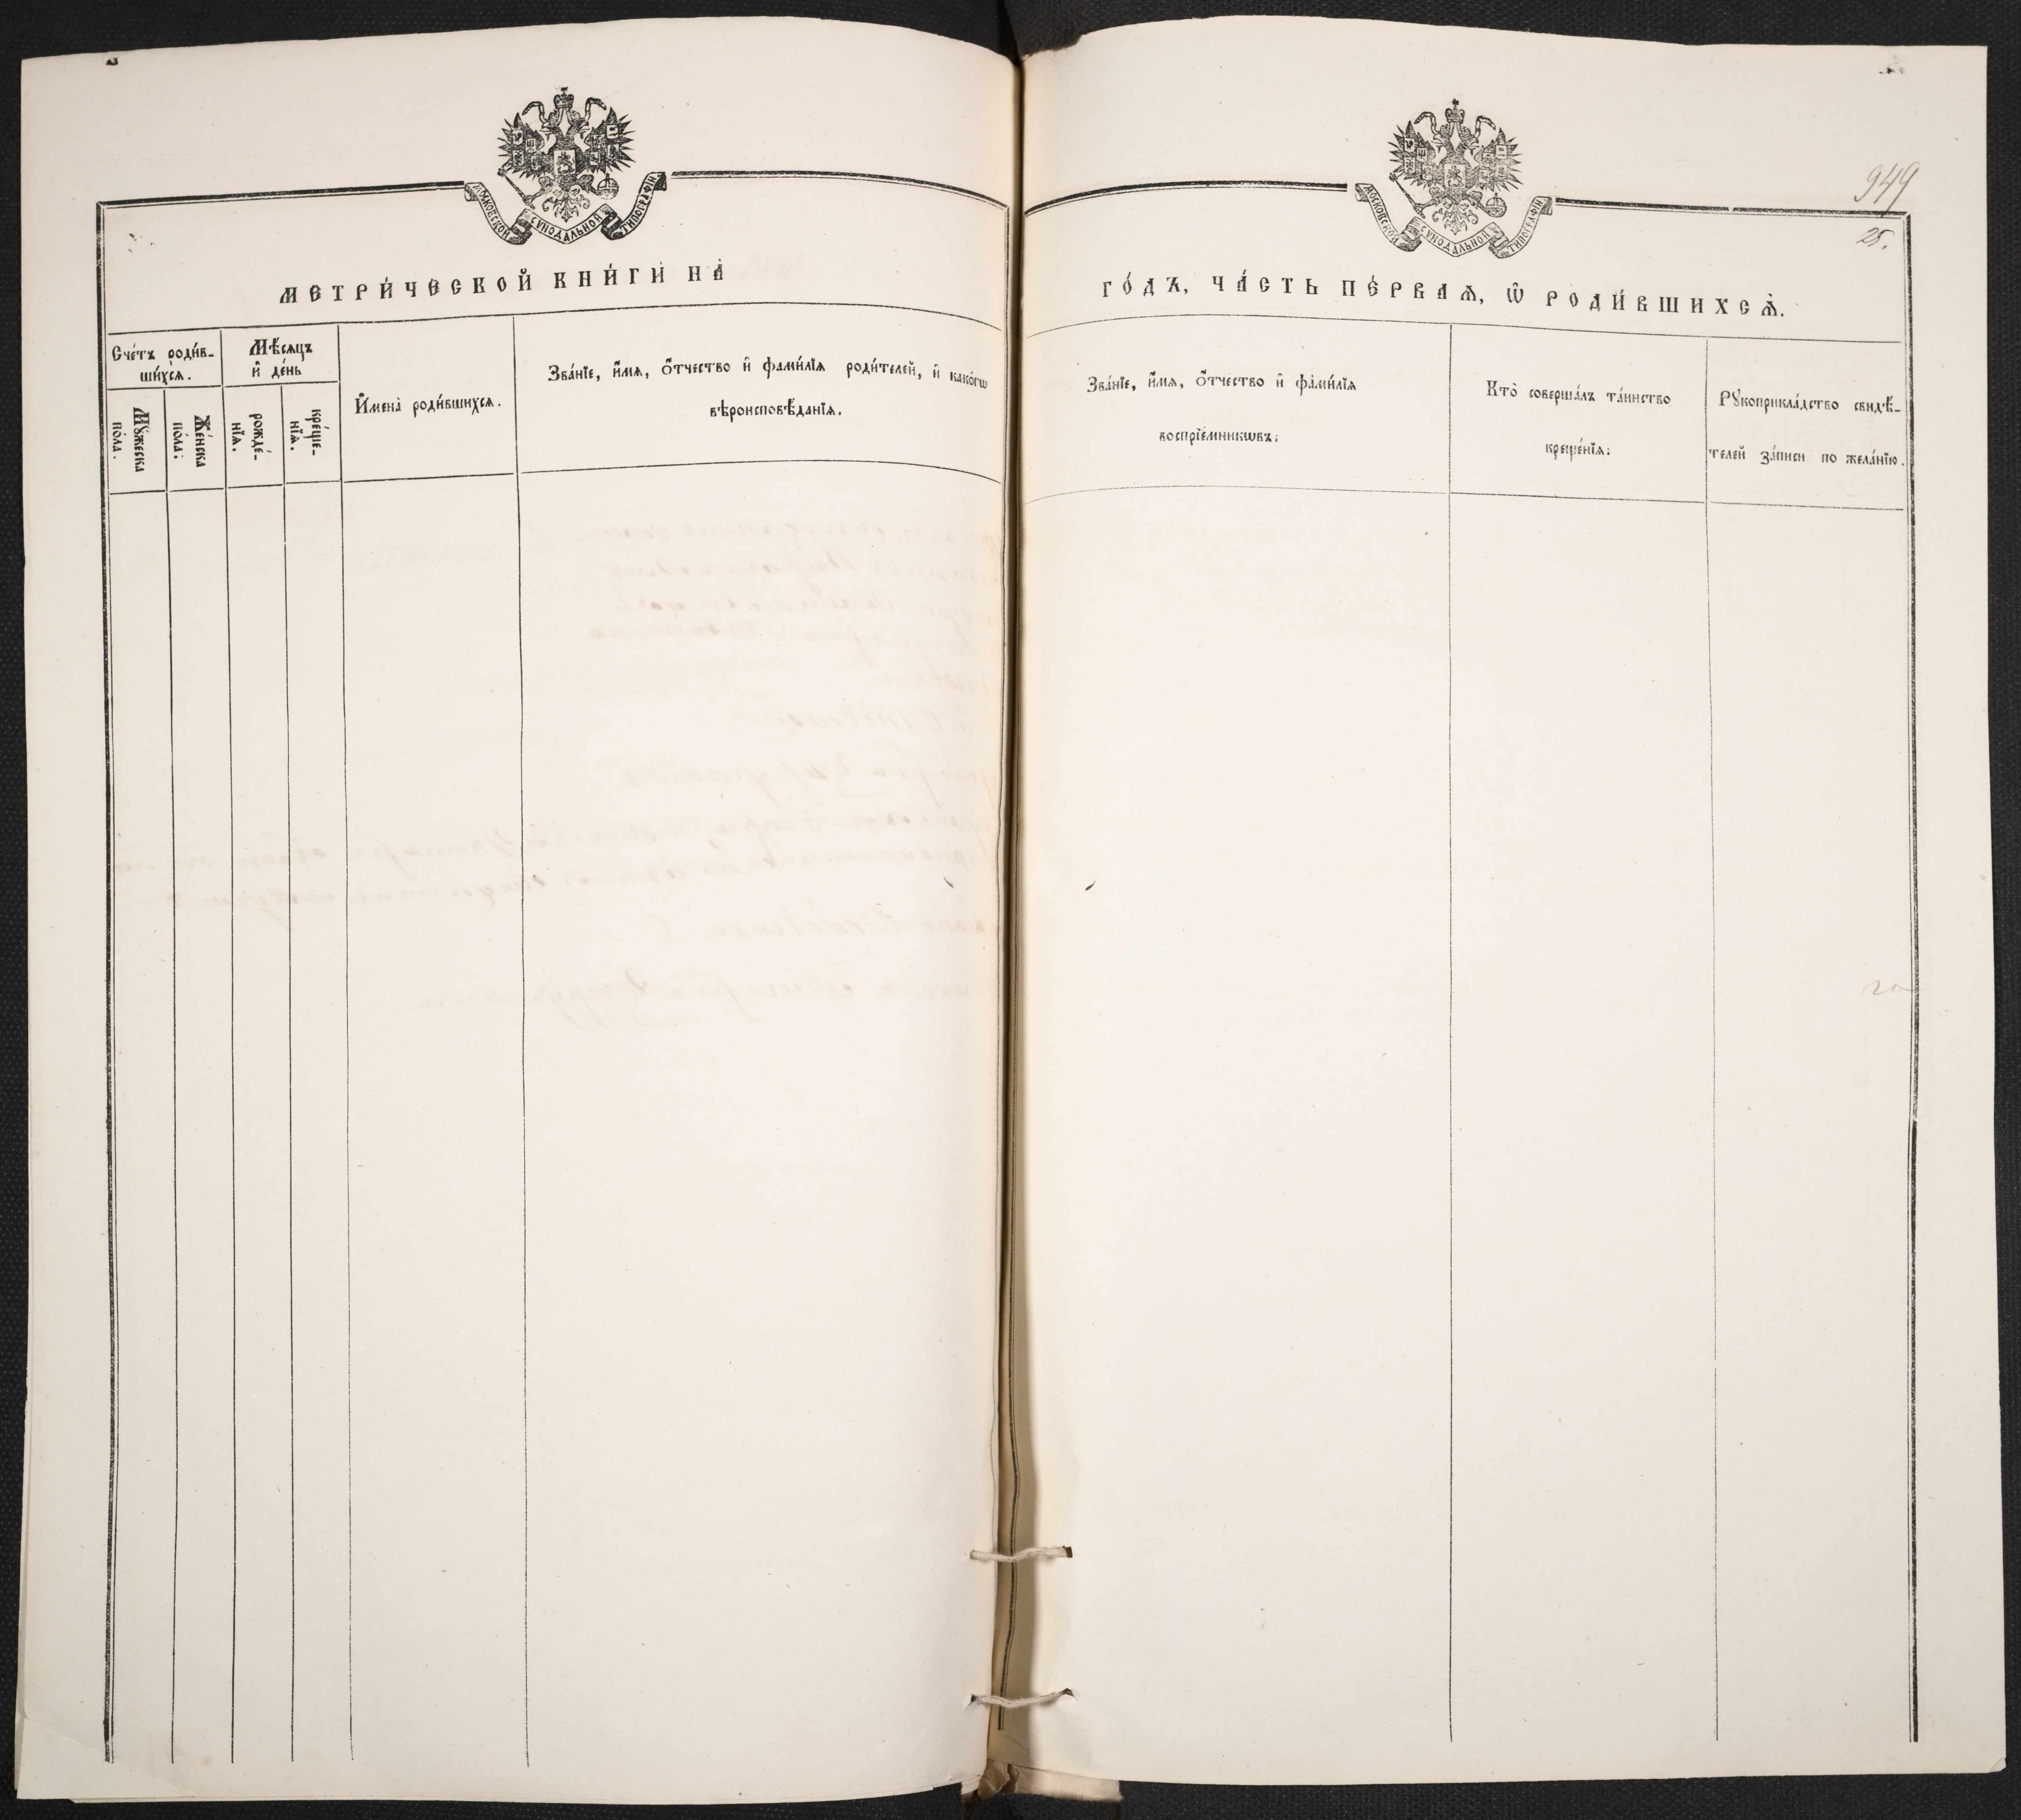 МОСКОВСКОЙ СѴНОДАЛЬНОЙ ТИПОГРАФІИ
МЕТРИ́ЧЕСКОЙ КНИ́ГИ НА̀
Сче́тъ роди́в-
ши́хсѧ.
Мѣ́сѧцъ
и҆ де́нь
И҆мена̀ роди́вшихсѧ.
Зва́нїе, и҆́мѧ, ѻ҆́тчество и҆ фами́лїѧ роди́телей, и҆ како́гѡ
вѣроисповѣ́данїѧ.
Мꙋ́жеска
по́ла.
Же́нска
по́ла:
рожде́-
нїѧ.
креще́-
нїѧ.
949
МОСКОВСКОЙ СѴНОДАЛЬНОЙ ТИПОГРАФІИ
25.
ГО́ДЪ, ЧА́СТЬ ПЕ́РВАѦ, Ѡ҆ РОДИ́ВШИХСѦ̀.
Зва́нїе, и҆́мѧ, ѻ҆́тчество и҆ фами́лїѧ
воспрїе́мникѡвъ:
Кто̀ соверша́лъ та́инство
креще́нїѧ:
Рꙋкоприкла́дство свидѣ́-
телей за́писи по жела́нїю.